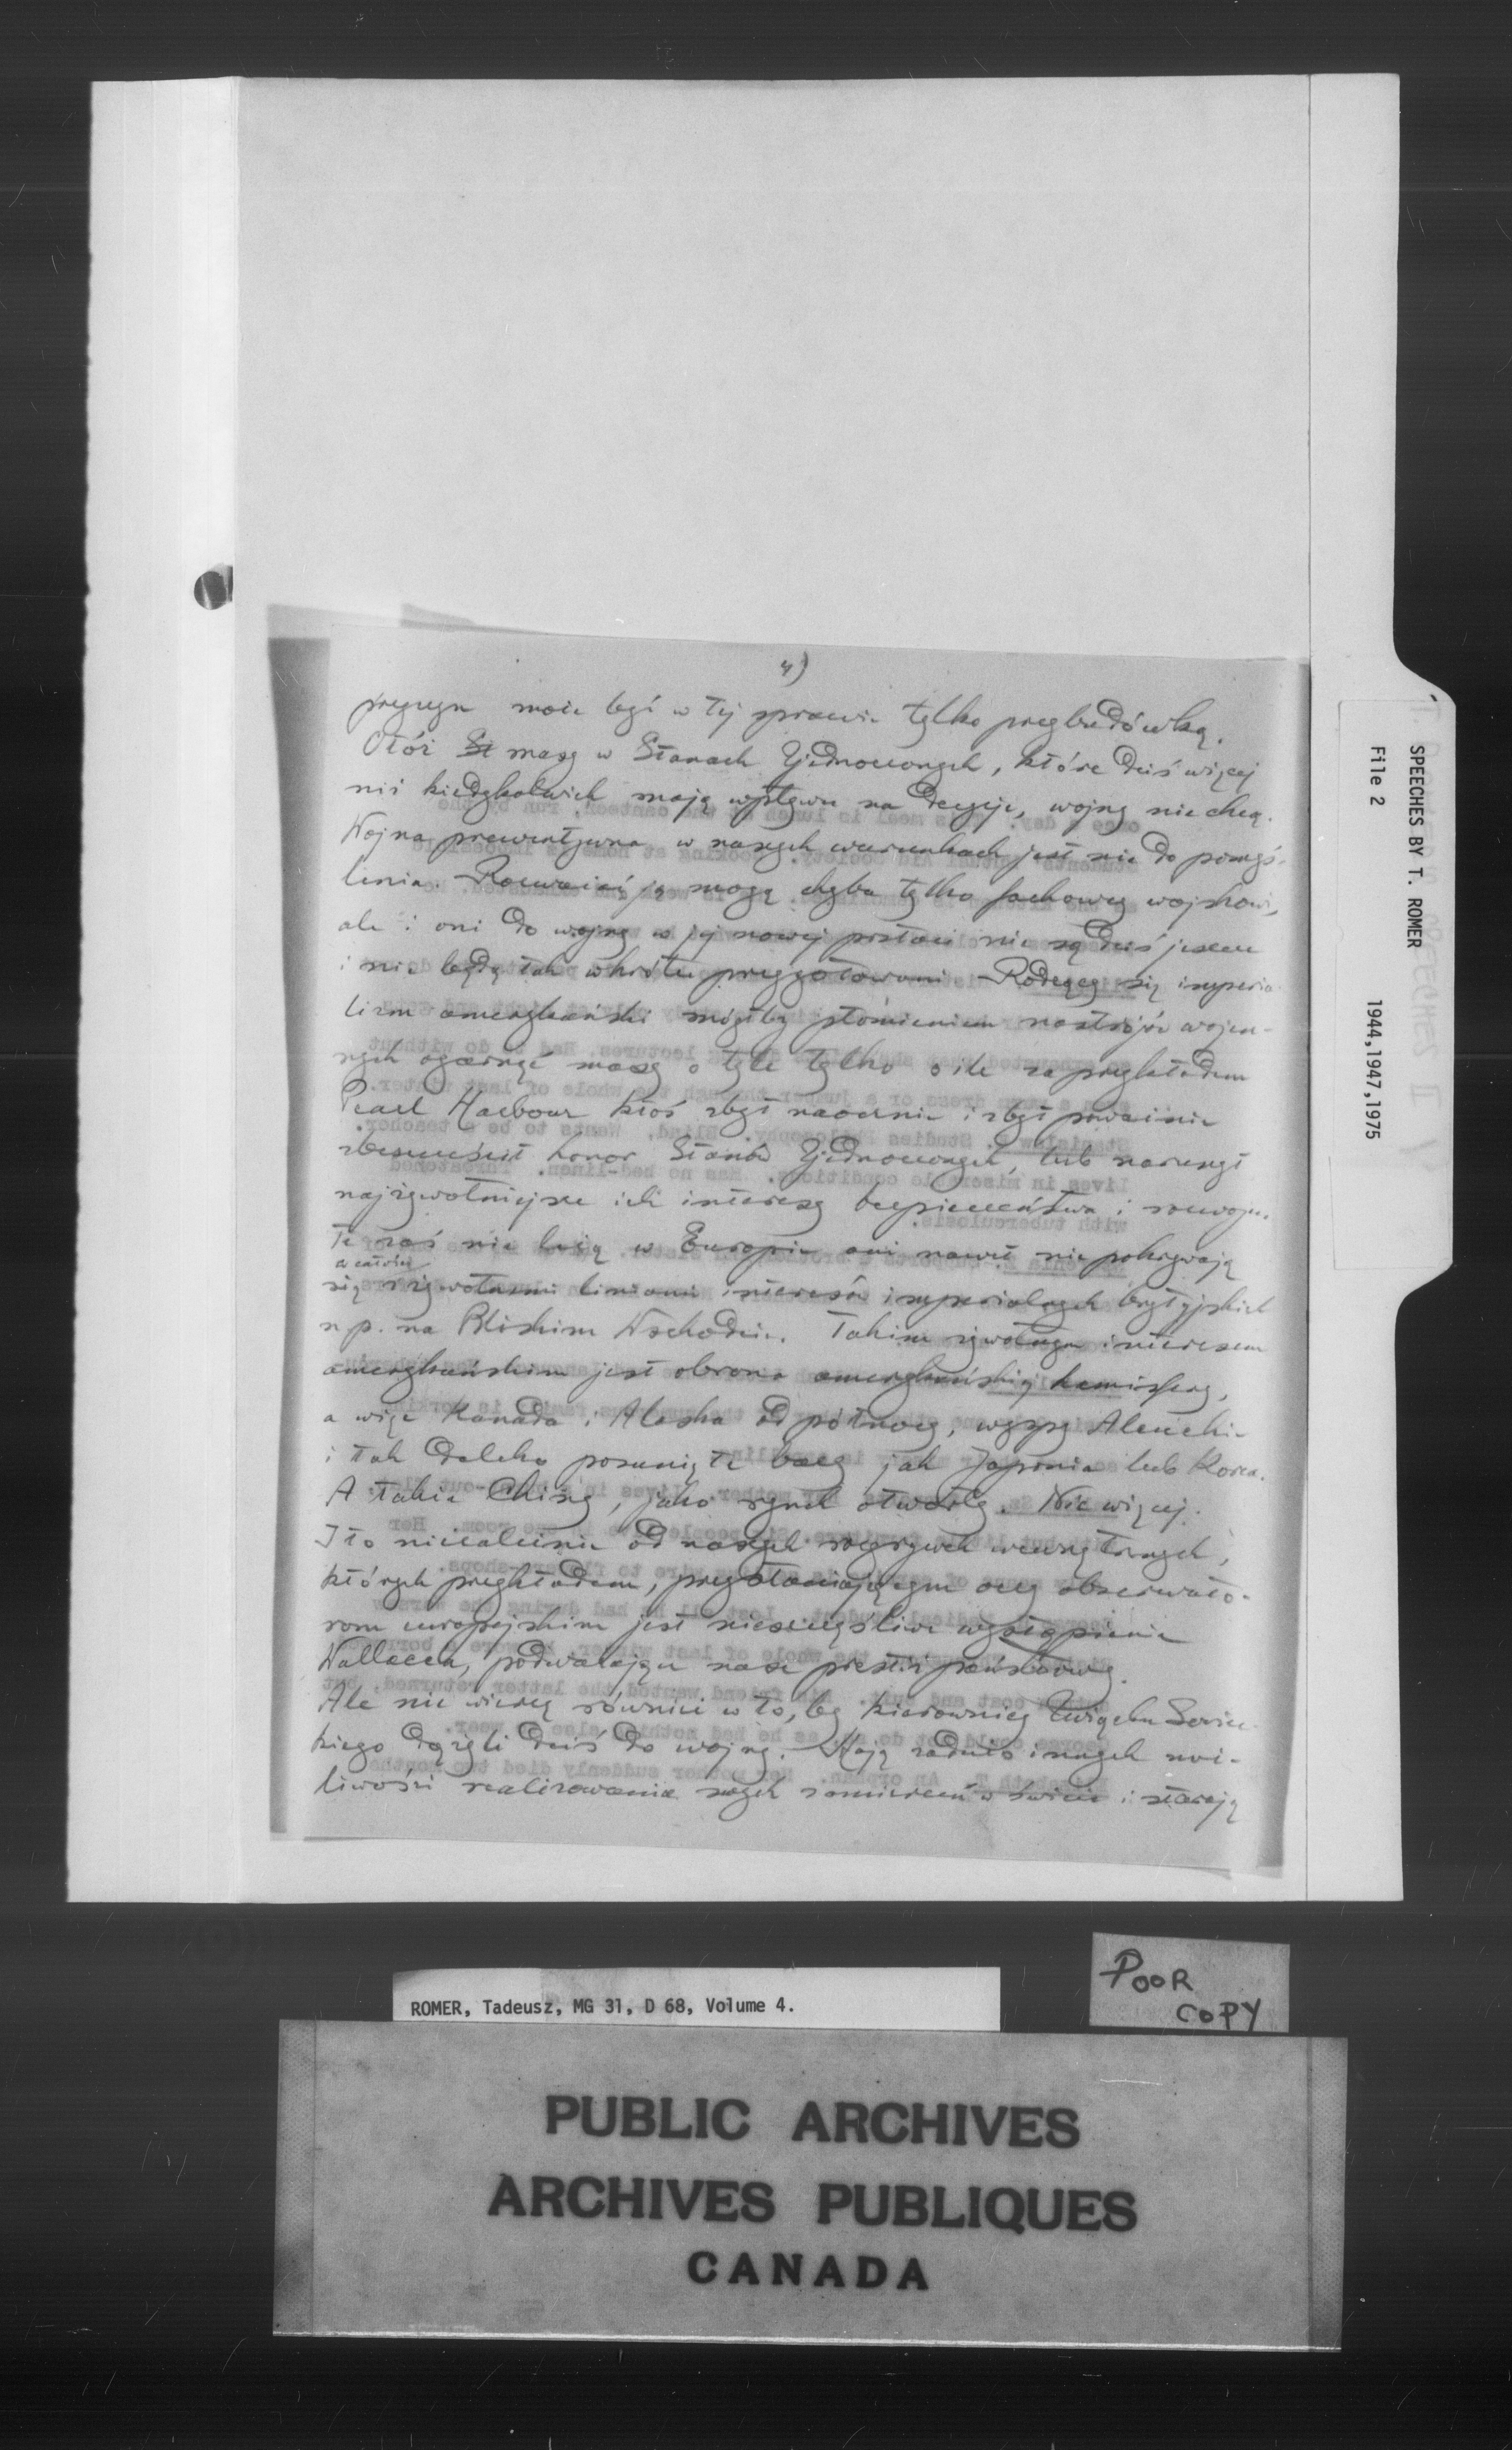 4)
przyczyn może być w tej sprawie tylko przybudówką.
Otóż St masy w Stanach Zjednoczonych, które dziś więcej
niż kiedykolwiek mają wpływu na decyzje, wojny nie chcą.
Wojna prewentywna w naszych warunkach jest nie do pomyś-
lenia. Rozważać ją mogą chyba tylko fachowcy wojskowi,
ale i oni do wojny w jej nowej postaci nie są dziś jeszcze
i nie będą tak wkrótce przygotowani. Rodzący się imperia-
lizm amerykański mógłby płomieniem nastrojów wojen-
nych ogarnąć masy o tyle tylko o ile za przykładem
Pearl Harbour ktoś zbyt naocznie i zbyt poważnie
zbezcześcił honor Stanów Zjednoczonych, lub naruszył
najżywotniejsze ich interesy bezpieczeństwa i rozwoju.
Te zaś nie leżą w Europie ani nawet nie pokrywają
w całości
się z żywotnemi liniami interesów imperialnych brytyjskich
n.p. na Bliskim Wschodzie. Takim żywotnym interesem
amerykańskim jest obrona amerykańskiej hemisfery,
a więc Kanada i Alaska od północy, wyspy Aleuckie
i tak daleko posunięte bazy jak Japonia lub Korea.
A także Chiny, jako rynek otwarty. Nic więcej.
I to niezależnie od naszych rozgrywek wewnętrznych,
których przykładem, przysłaniającym oczy obserwato-
rom europejskim jest nieszczęśliwe wystąpienie
Wallace'a, podważające nasz prestiż państwowy.
Ale nie wierzę również w to, by kierownicy Związku Sowiec-
kiego dążyli dziś do wojny. Mają zadużo innych moż-
liwości realizowania swych zamierzeń w świecie i starają
SPEECHES BY T. ROMER
File 2
1944,1947,1975
ROMER, Tadeusz, MG 31, D 68, Volume 4.
POOR
COPY
PUBLIC ARCHIVES
ARCHIVES PUBLIQUES
CANADA